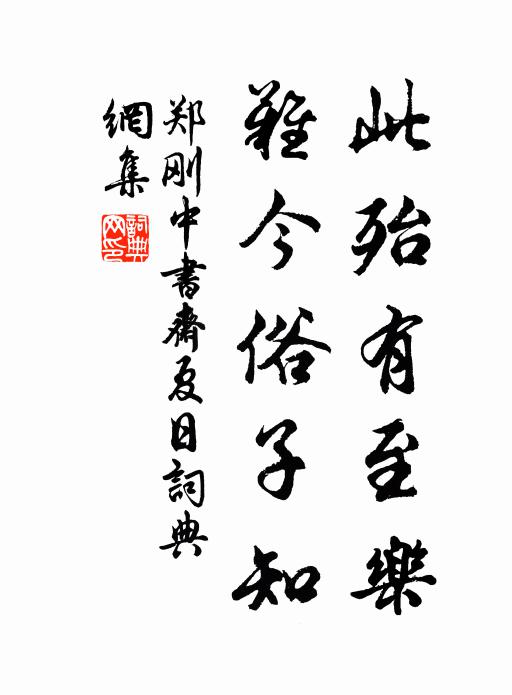 此殆有至樂
難今俗子知
郑刚中書齋夏日詞典
網集
詞典
网印